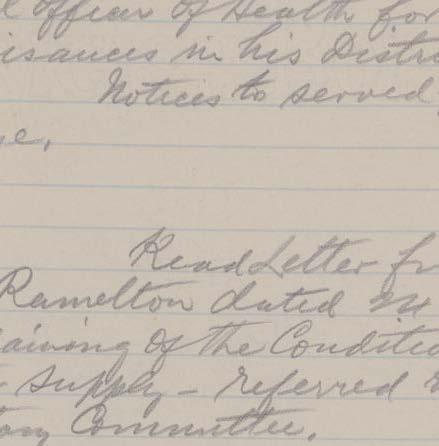 l officer of Health for
isances in his Distr
Notices to served
e,
Read Letter fr
Ramelton dated
aining of the Conditio
supply - referred
tory Committee.